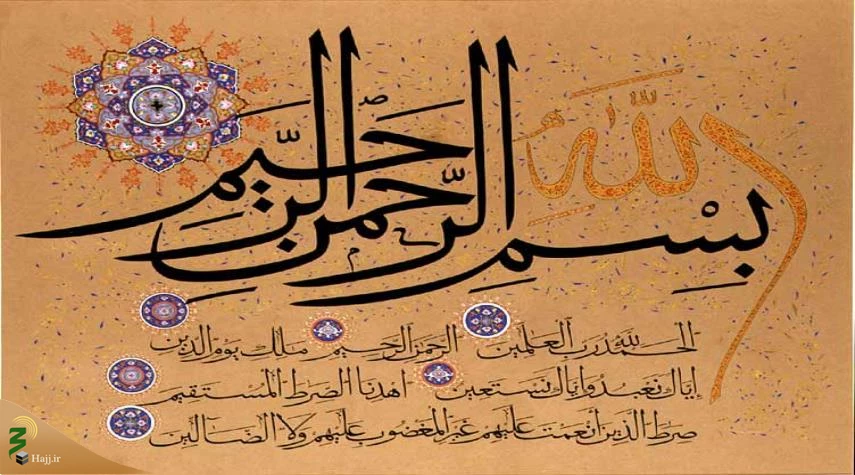 بِسْمِ اللّٰهِ الرَّحْمٰنِ الرَّحِيْمِ
الحمد لله رب العلمين الرحمن الرحيم ملك يوم الدين
إياك نعبد وإياك نستعين اهدنا الصرط المستقيم
صرط الذين أنعمت عليهم غير المغضوب عليهم ولا الضالين
Hajj.ir